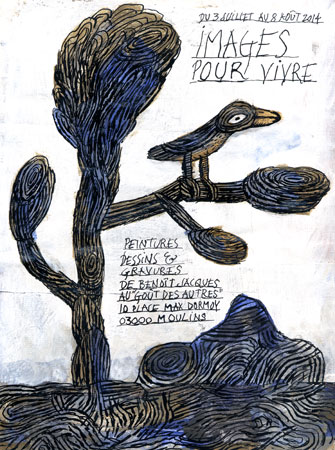 DU 3 JUILLET AU 8 AOÛT 2014
IMAGES
POUR VIVRE
PEINTURES
DESSINS &
GRAVURES
DE BENOÎT JACQUES
AU "GOUT DES AUTRES"
10 PLACE MAX DORMOY
03000 MOULINS